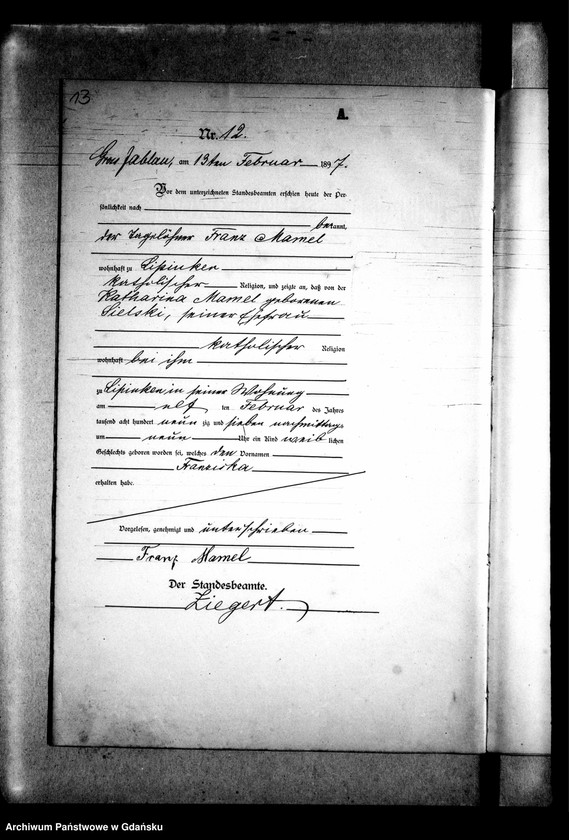 13
A.
Nr. 12.
Gross Jablau, am 13ten Februar 1897.
Vor dem unterzeichneten Standesbeamten erschien heute der Per-
sönlichkeit nach
bekannt,
der Tagelöhner Franz Mamel
wohnhaft zu Lipinken
katholischer Religion, und zeigte an, daß von der
Katharina Mamel geborenen
Sielski, seiner Ehefrau
katholischer Religion
wohnhaft bei ihm
zu Lipinken in seiner Wohnung
am elf ten Februar des Jahres
tausend acht hundert neun zig und sieben nachmittags
um neun Uhr ein Kind weib lichen
Geschlechts geboren worden sei, welches den Vornamen
Franziska
erhalten habe.
Vorgelesen, genehmigt und unterschrieben
Franz Mamel
Der Standesbeamte.
Ziegert.
Archiwum Państwowe w Gdańsku